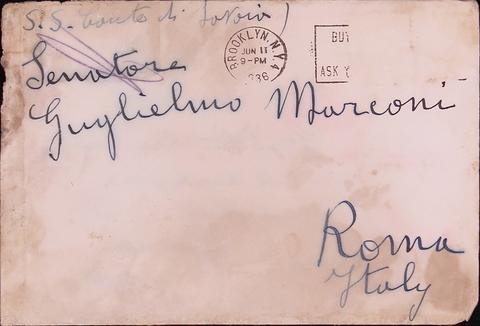 S.S. Conte di Savoia)
BROOKLYN, N.Y. 4
JUN 11
9-PM
1936
BUY
ASK Y
Senatore
Guglielmo Marconi
Roma
Italy